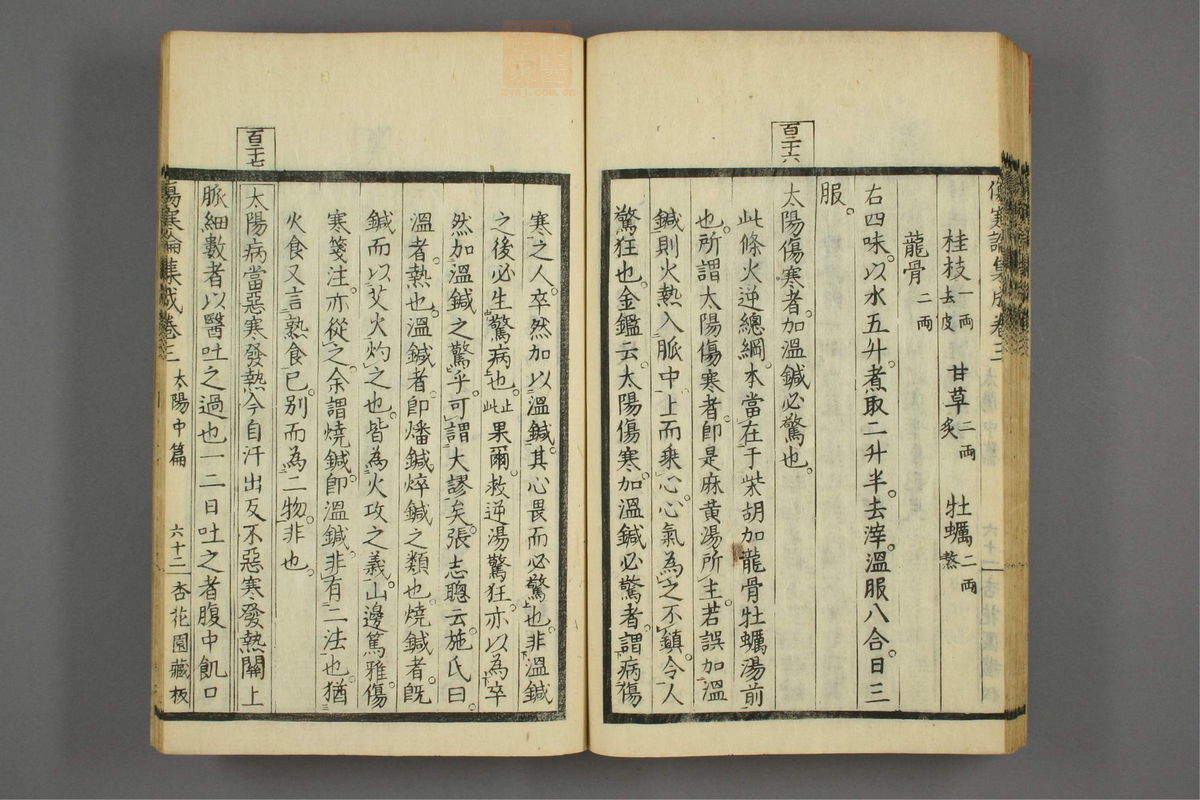 傷寒論集成卷三
桂枝一兩去皮 甘草二兩炙 牡蠣二兩熬
龍骨二兩
右四味。以水五升。煮取二升半。去滓。溫服八合日三
服。
百三十六
太陽傷寒者。加溫鍼必驚也。
此條火逆總綱。本當在于柴胡加龍骨牡蠣湯前
也。所謂太陽傷寒者。卽是麻黃湯所主。若誤加溫
鍼。則火熱入脈中。上而乘心。心氣為之不鎮。令人
驚狂也。金鑑云。太陽傷寒。加溫鍼必驚者。謂病傷
寒之人。卒然加以溫鍼。其心畏而必驚也。非溫鍼
之後必生驚病也。止此果爾。救逆湯驚狂。亦以為卒
然加溫鍼之驚乎。可謂大謬矣。張志聰云。施氏曰。
溫者。熱也。溫鍼者。卽燔鍼焠鍼之類也。燒鍼者。旣
鍼而以艾火灼之也。皆為火攻之義。山邊篤雅傷
寒箋注。亦從之。余謂燒鍼。卽溫鍼。非有二法也。猶
火食又言熟食已。別而為二物。非也。
百三十七
太陽病當惡寒發熱今自汗出反不惡寒發熱關上
脈細數者以醫吐之過也一二日吐之者腹中飢口
傷寒論集成卷三 太陽中篇 六十二 杏花園藏板